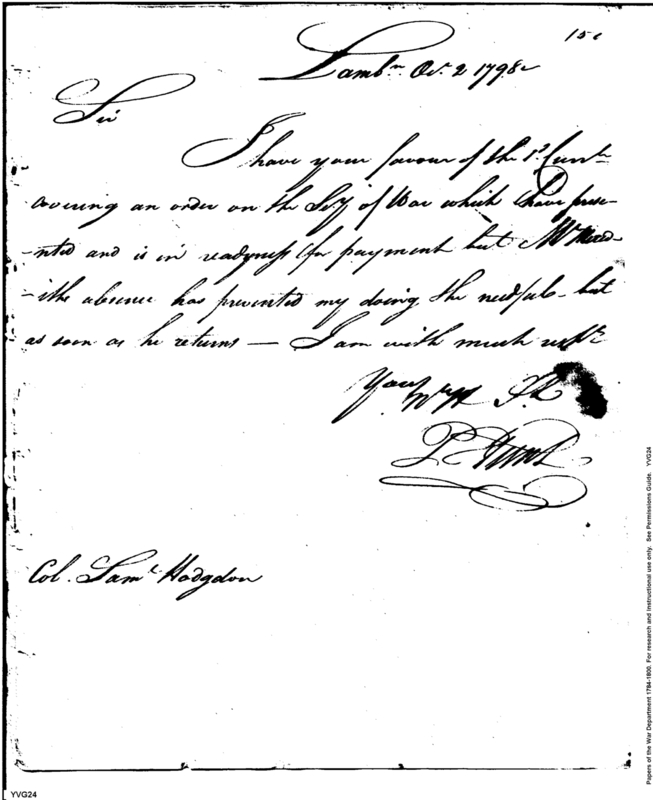 150
Lambn. Oct. 2 1798
Sir
I have your favour of the 1st. Currt.
covering an order on the Secy of War which I have prese-
-nted and is in readyness for payment but Mr Mered-
-iths absence has prevented my doing the needful - but
as soon as he returns — I am with much respt.
Your
P. Hunt
Col. Saml. Hodgdon
Papers of the War Department 1784-1800. For research and instructional use only. See Permissions Guide. YVG24
YVG24